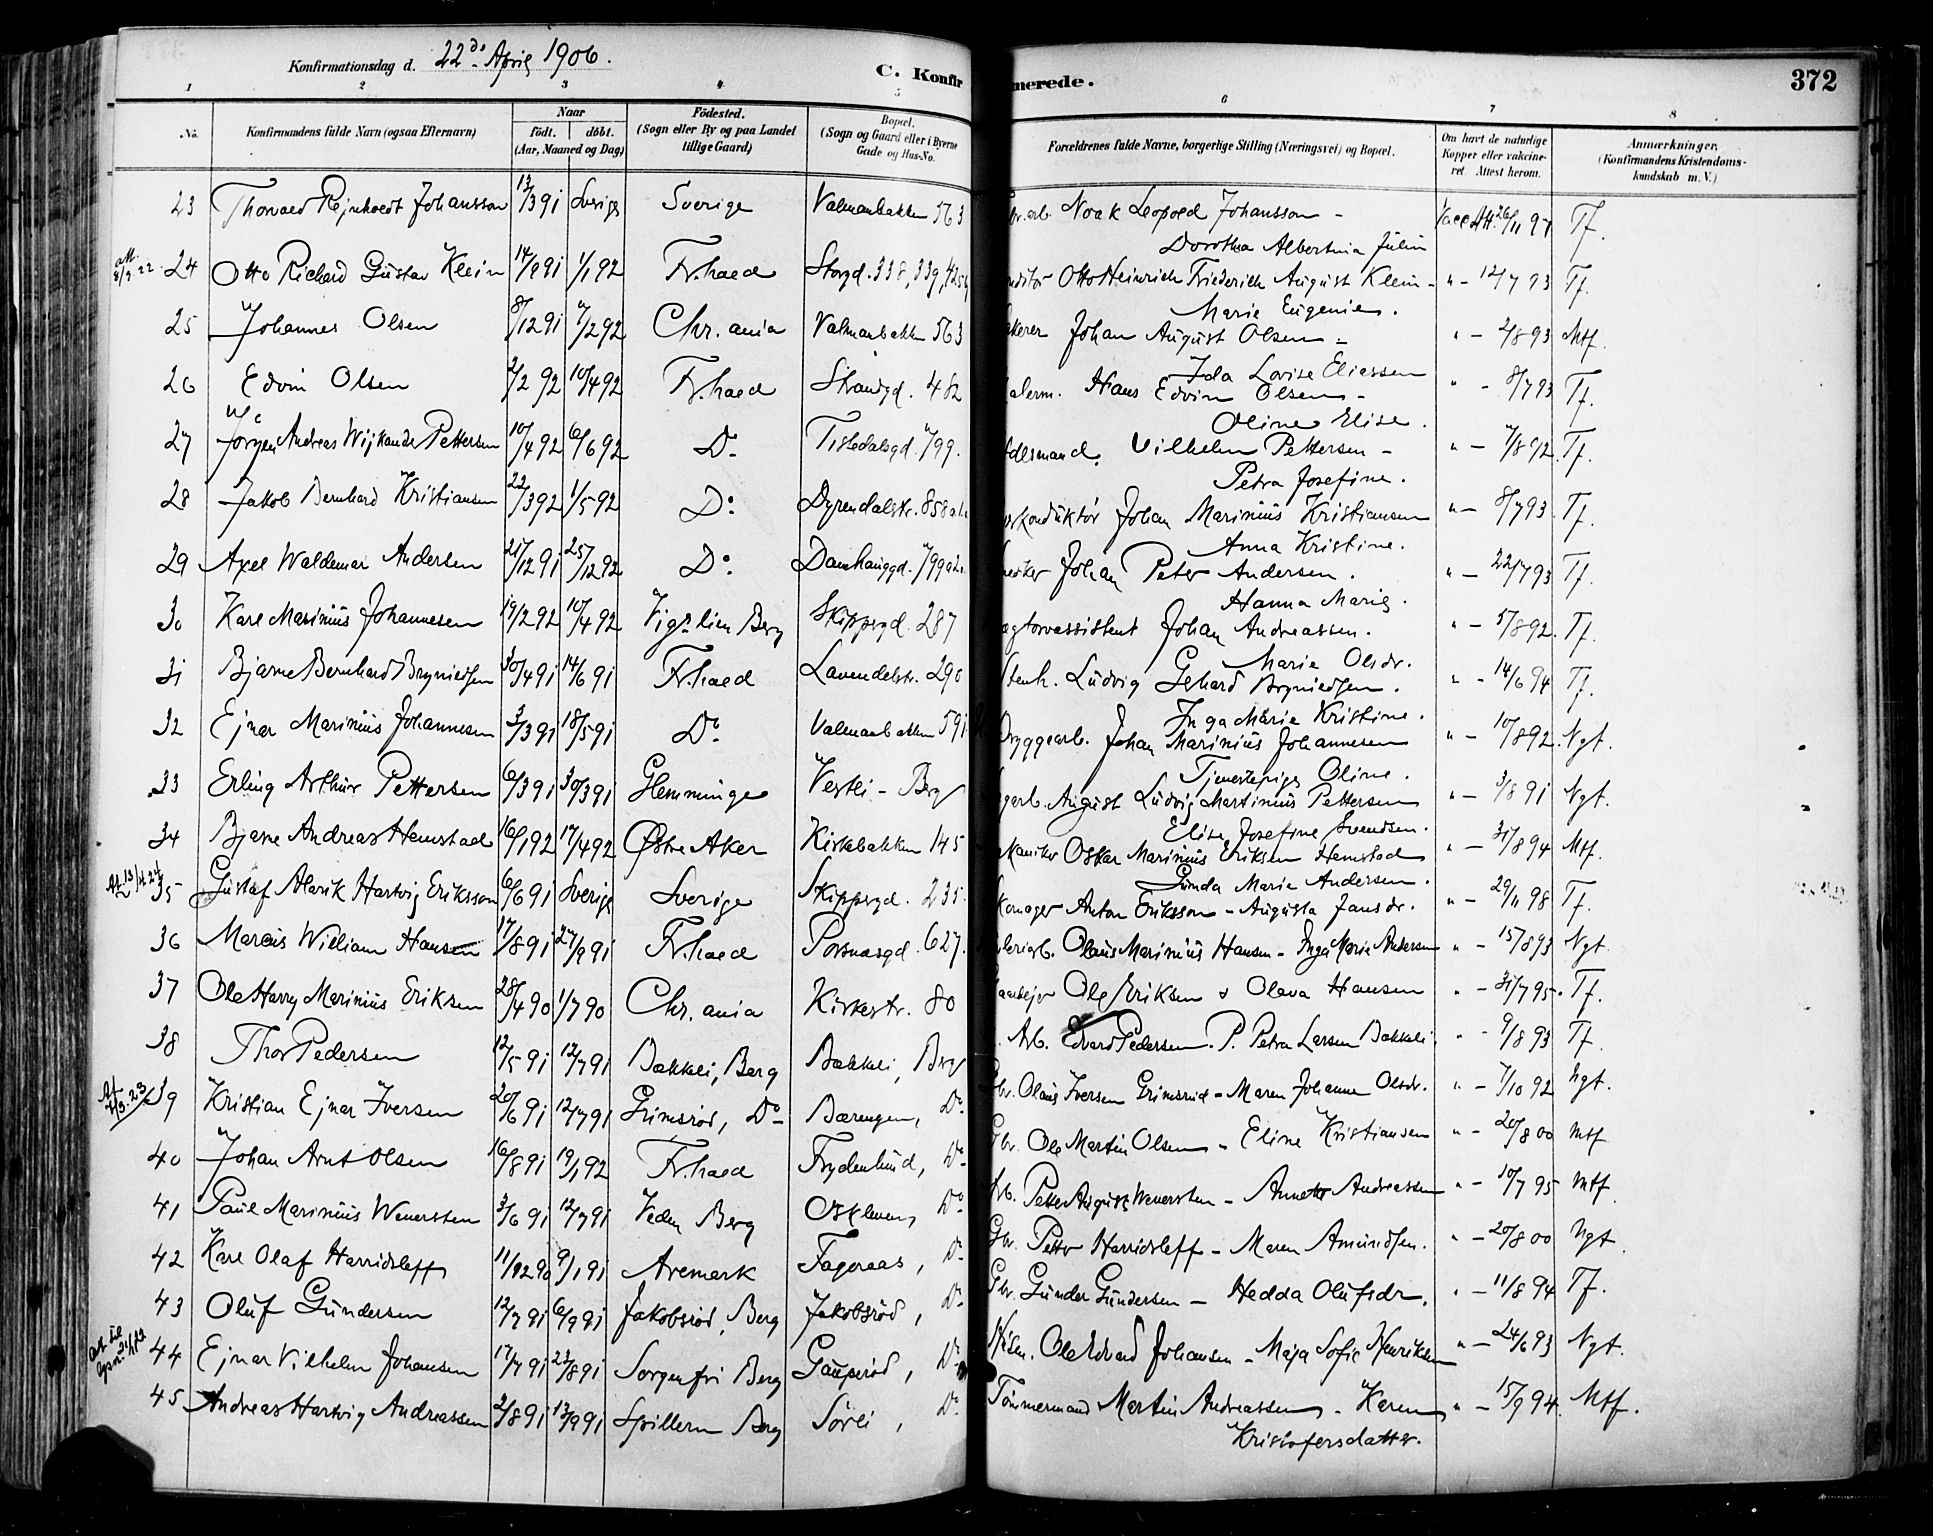 Konfirmationsdag d. 22de April 1906. C. Konfir merede. 372
1 2 3 4 5 6 7 8
No. Konfirmandens fulde Navn (ogsaa Efternavn) Naar født. døbt. (Aar, Maaned og Dag) Födested. (Sogn eller By og paa Landet tillige Gaard) Bopæl. (Sogn og Gaard eller i Byerne Gade og Hus-No. Forældrenes fulde Navne, borgerlige Stilling (Næringsvei) og Bopæl. Om havt de naturlige Kopper eller vakcineret. Attest herom. Anmærkninger. (Konfirmandens Kristendomskundskab m. V.)
23 Thorvald Rejnholdt Johansson 13/3 91 Sverige Sverige Valmanbakken 563 Noak Leopold Johansson - Vacc. Att. 26/11 97 Tf.
Dorothea Albertina Julin
24 Otto Richard Gustav Klein 14/9 91 1/1 92 Fr.hald Storgd. 338, 339, Otto Heinrich Friederich August Klein - " - 12/7 93 Tf.
Marie Eugenie.
25 Johannes Olsen 8/12 91 7/2 92 Chr.ania Valmanbakken 563 Johan August Olsen - " - 2/8 93 Mtf.
Ida Lovise Eliassen
26 Edvin Olsen 2/2 92 10/4 92 Fr.hald Strandgd. 482 Hans Edvin Olsen - " - 8/7 93 Tf.
Oline Elise.
27 Jørgen Andreas Wijkande Pettersen 10/4 92 6/6 92 Do. Tistedalsgd. 799. Vilhelm Pettersen - " - 7/8 92. Tf.
Petra Josefine.
28 Jakob Bernhard Kristiansen 22/3 92 1/5 92 Do. Dyrendalstr. 858 Johan Marinius Kristiansen " - 8/7 93. Tf.
Anna Kristine.
29 Axel Waldemar Andersen 21/12 91 25/12 92 Do. Damhauggd. 799 Johan Peter Andersen. " - 22/7 93 Tf.
Hanna Marie.
30 Karl Marinius Johannesen 19/2 92 10/4 92 Berg Skippergd. 287 Johan Andreassen. " - 5/8 92. Tf.
Marie Olsdr.
31 Bjarne Bernhard Brynildsen 30/4 91 14/6 91 Fr.hald Lavendelstr. 290 Stenh. Ludvig Gehard Brynildsen. " - 14/6 94 Tf.
Inga Marie Kristine.
32 Ejnar Marinius Johannesen 3/3 91 18/5 91 Do. Valmanbakken 591 Bryggearb. Johan Marinius Johannesen " - 10/8 92. Ngt.
Tjenestepige Oline.
33 Erling Arthur Pettersen 6/3 91 30/3 91 Glemminge Vestli - Berg August Ludvig Martinius Pettersen " - 3/8 91 Ngt.
Elise Josefine Svendsen.
34 Bjarne Andreas Hemstad 16/1 92 17/4 92 Østre Aker Kirkebakken 145 Oskar Marinius Eriksen Hemstad " - 31/8 94 Mtf.
Gunda Marie Andersen.
35 Gustaf Alarik Hartvig Eriksson 6/6 91 Sverige Sverige Skippergd. 235. Anton Eriksson - Augusta Jansdr. " - 29/11 98 Tf.
36 Marcus William Hansen 17/8 91 27/9 91 Fr.hald Porsnasgd. 627. Olaus Marinius Hansen - Inga Marie Andersen " - 15/8 93 Ngt.
37 Ole Harry Marinius Eriksen 28/4 90 1/7 90 Chr.ania Kirkestr. 80 Ole Eriksen & Olava Hansen " - 31/7 95. Tf.
38 Thor Pedersen 12/5 91 12/7 91 Bakkeli, Berg Bakkeli, Berg Arb. Edvard Pedersen. P. Petra Larsen Bakkeli. " - 9/8 93 Tf.
39 Kristian Ejnar Iversen 20/6 91 12/7 91 Grimsrød, Do. Bærengen, Do. Olaus Iversen Grimsrud - Maren Johanne Olsdr. " - 7/10 92 Ngt.
40 Johan Arnt Olsen 16/8 91 19/1 92 Fr.hald Frydenlund, Do. Gbr. Ole Martin Olsen - Eline Kristiansen " - 20/8 00 Mtf
41 Paul Marinius Wenersten 3/6 91 12/7 91 Veden Berg Do. Arb. Petter August Wenersten - Annette Andreassen " - 10/7 95 Mtf.
42 Karl Olaf Harridsleff 11/12 90 9/1 91 Aremark Fageraas, Do. Gbr. Petter Harridsleff - Maren Amundsen. " - 20/8 00 Ngt.
43 Oluf Gundersen 12/7 91 6/9 91 Jakobsrød, Berg Jakobsrød, Do. Gbr. Gunder Gundersen - Hedda Olufsdr. " - 11/8 94 Tf.
44 Ejnar Vilhelm Johansen 17/7 91 23/8 91 Sorgenfri Berg Gauperød, Do. Ole Edvard Johansen - Maja Sofie Henriksen " - 24/6 93 Ngt.
45 Andreas Hartvig Andreassen 2/8 91 13/9 91 Spillern Berg Sørli, Do. Tømmermand Martin Andreassen - Karen " - 15/9 94. Mtf.
Kristofersdatter.